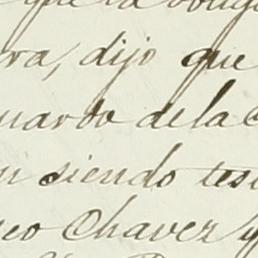 que la
ra, dijo que
uardo de la C
n siendo tes
eo Chavez y